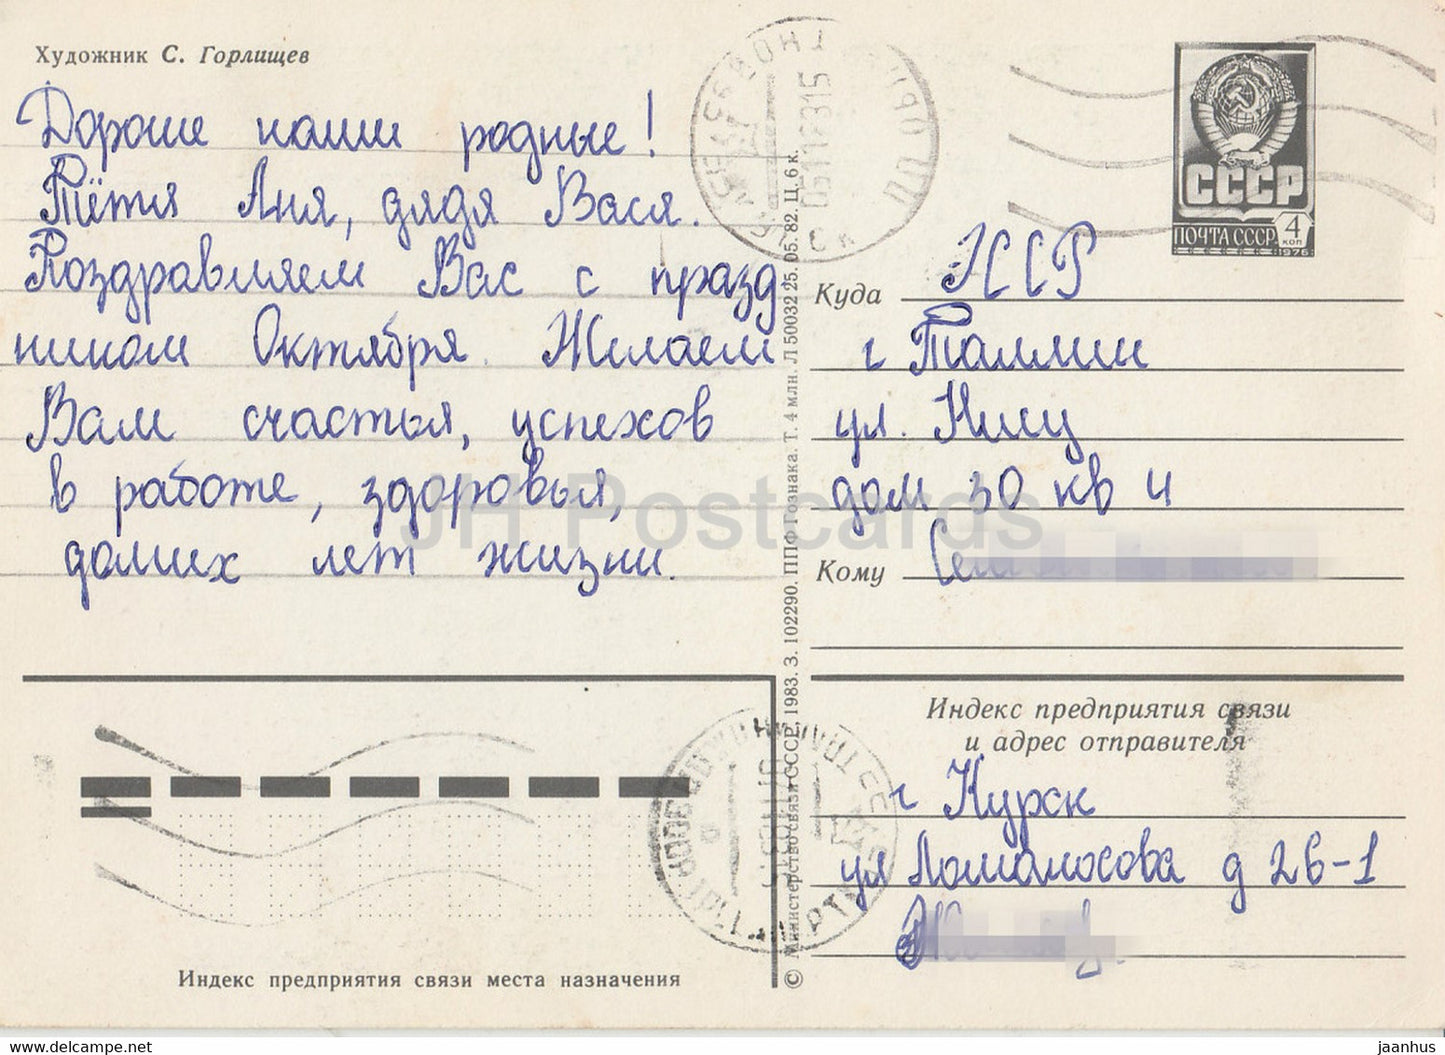 Художник С. Горлищев
Дорогие наши родные!
Тётя Аня, дядя Вася.
Поздравляем Вас с празд
ником Октября. Желаем
Вам счастья, успехов
в работе, здоровья,
долгих лет жизни.
СССР
ПОЧТА СССР 4 коп
1976
Куда
г Таллин
ул.
дом 30 кв 4
Кому
Индекс предприятия связи
и адрес отправителя
г Курск
ул Ломоносова д 26-1
Индекс предприятия связи места назначения
© Министерство связи СССР, 1983. З. 102290. ППФ Гознака. Т. 4 млн. Л 50032 25. 05. 82. Ц. 6 к.
JH Postcards
www.hippostcard.com
jaanhu